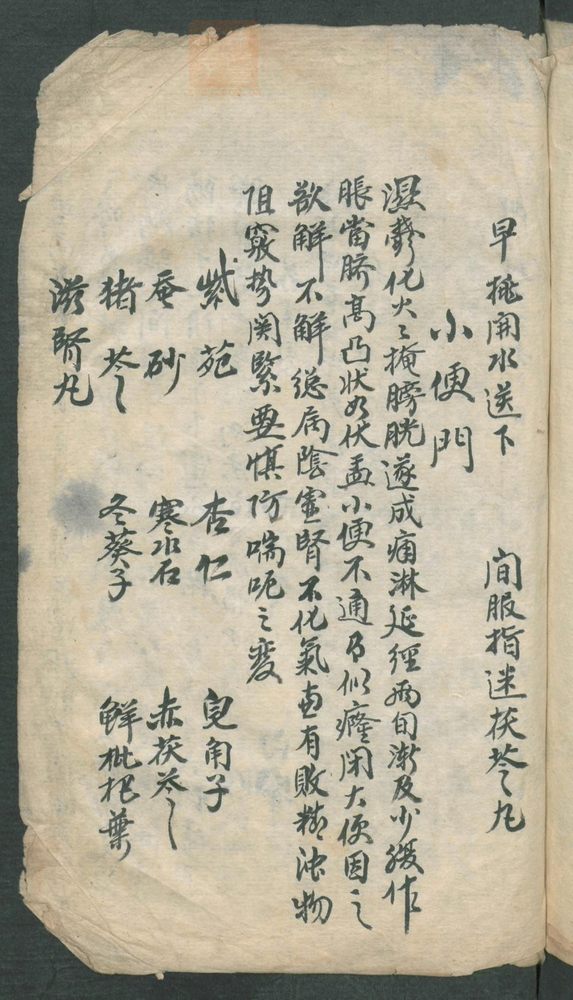 早挑開水送下 間服指迷茯苓丸
小便門
濕鬱化火〻掩膀胱遂成痛淋延經兩旬漸及少腹作
脹當臍髙凸狀如伏盂小便不通乃似癃閉大便因之
欲解不解總病陰虛腎不化氣更有敗精濁物
阻竅勢関緊要慎防喘呃之變
紫苑 杏仁 皂角子
蚕砂 寒水石 赤茯苓
猪苓 冬葵子 鮮枇杷葉
滋腎丸